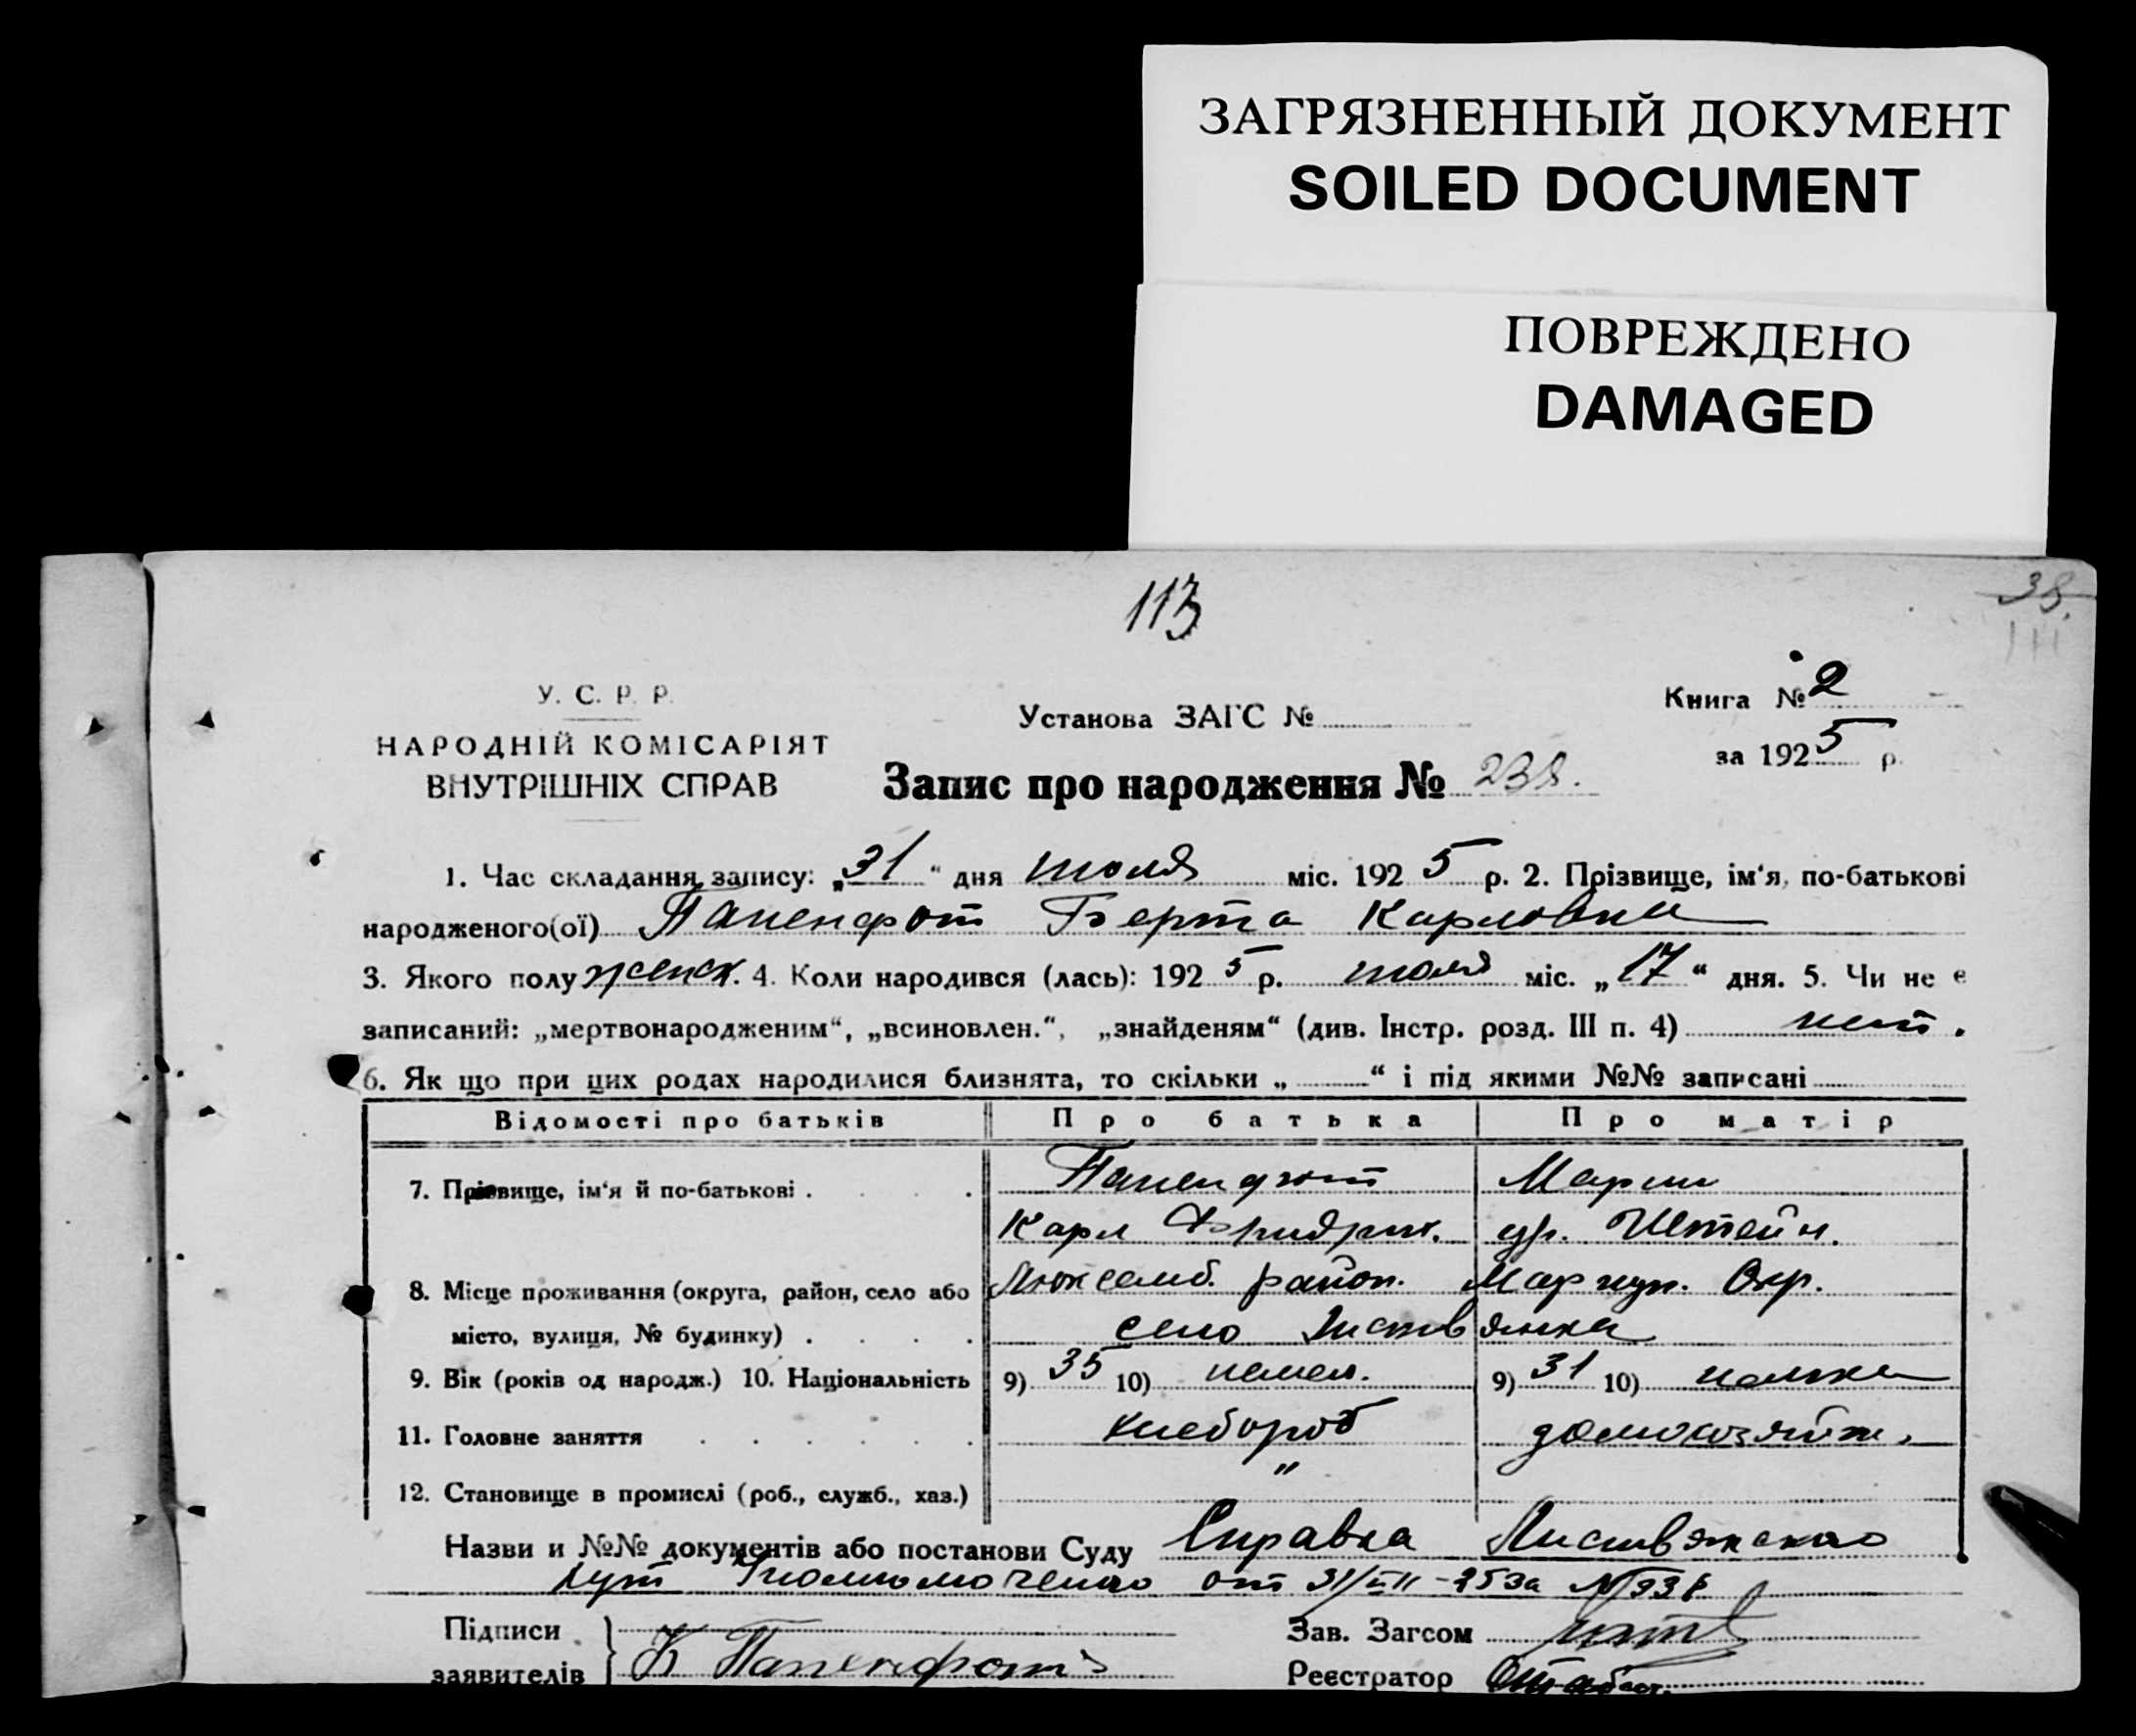 ЗАГРЯЗНЕННЫЙ ДОКУМЕНТ
SOILED DOCUMENT
ПОВРЕЖДЕНО
DAMAGED
113
38.
У. С. Р. Р.
НАРОДНІЙ КОМІСАРІЯТ
ВНУТРІШНІХ СПРАВ
Установа ЗАГС №
Книга № 2
за 1925 р.
Запис про народження № 238.
1. Час складання запису: „31“ дня июля міс. 1925 р. 2. Прізвище, ім‘я, по-батькові
народженого(ої) Папенфот Берта Карловна
3. Якого полу женск. 4. Коли народився (лась): 1925 р. июля міс. „17“ дня. 5. Чи не є
записаний: „мертвонародженим“, „всиновлен.“, „знайденям“ (див. Інстр. розд. III п. 4) нет.
6. Як що при цих родах народилися близнята, то скільки „ “ і під якими №№ записані
Відомості про батьків Про батька Про матір
7. Прізвище, ім‘я й по-батькові . . . . Папенфот Мария
Карл Фридрих. ур. Штейн.
8. Місце проживання (округа, район, село або Люксемб. район. Мариуп. Окр.
місто, вулиця, № будинку) . . . . село Листвянка
9. Вік (років од народж.) 10. Національність 9) 35 10) немец. 9) 31 10) немка
11. Головне заняття . . . . . . хлебороб домохозяйк.
12. Становище в промислі (роб., служб., хаз.) "
Назви и №№ документів або постанови Суду Справка Листвянского
хут Уполномоченого от 31/VII-253а №938
Підписи
заявителів К Папенфот
Зав. Загсом
Реєстратор